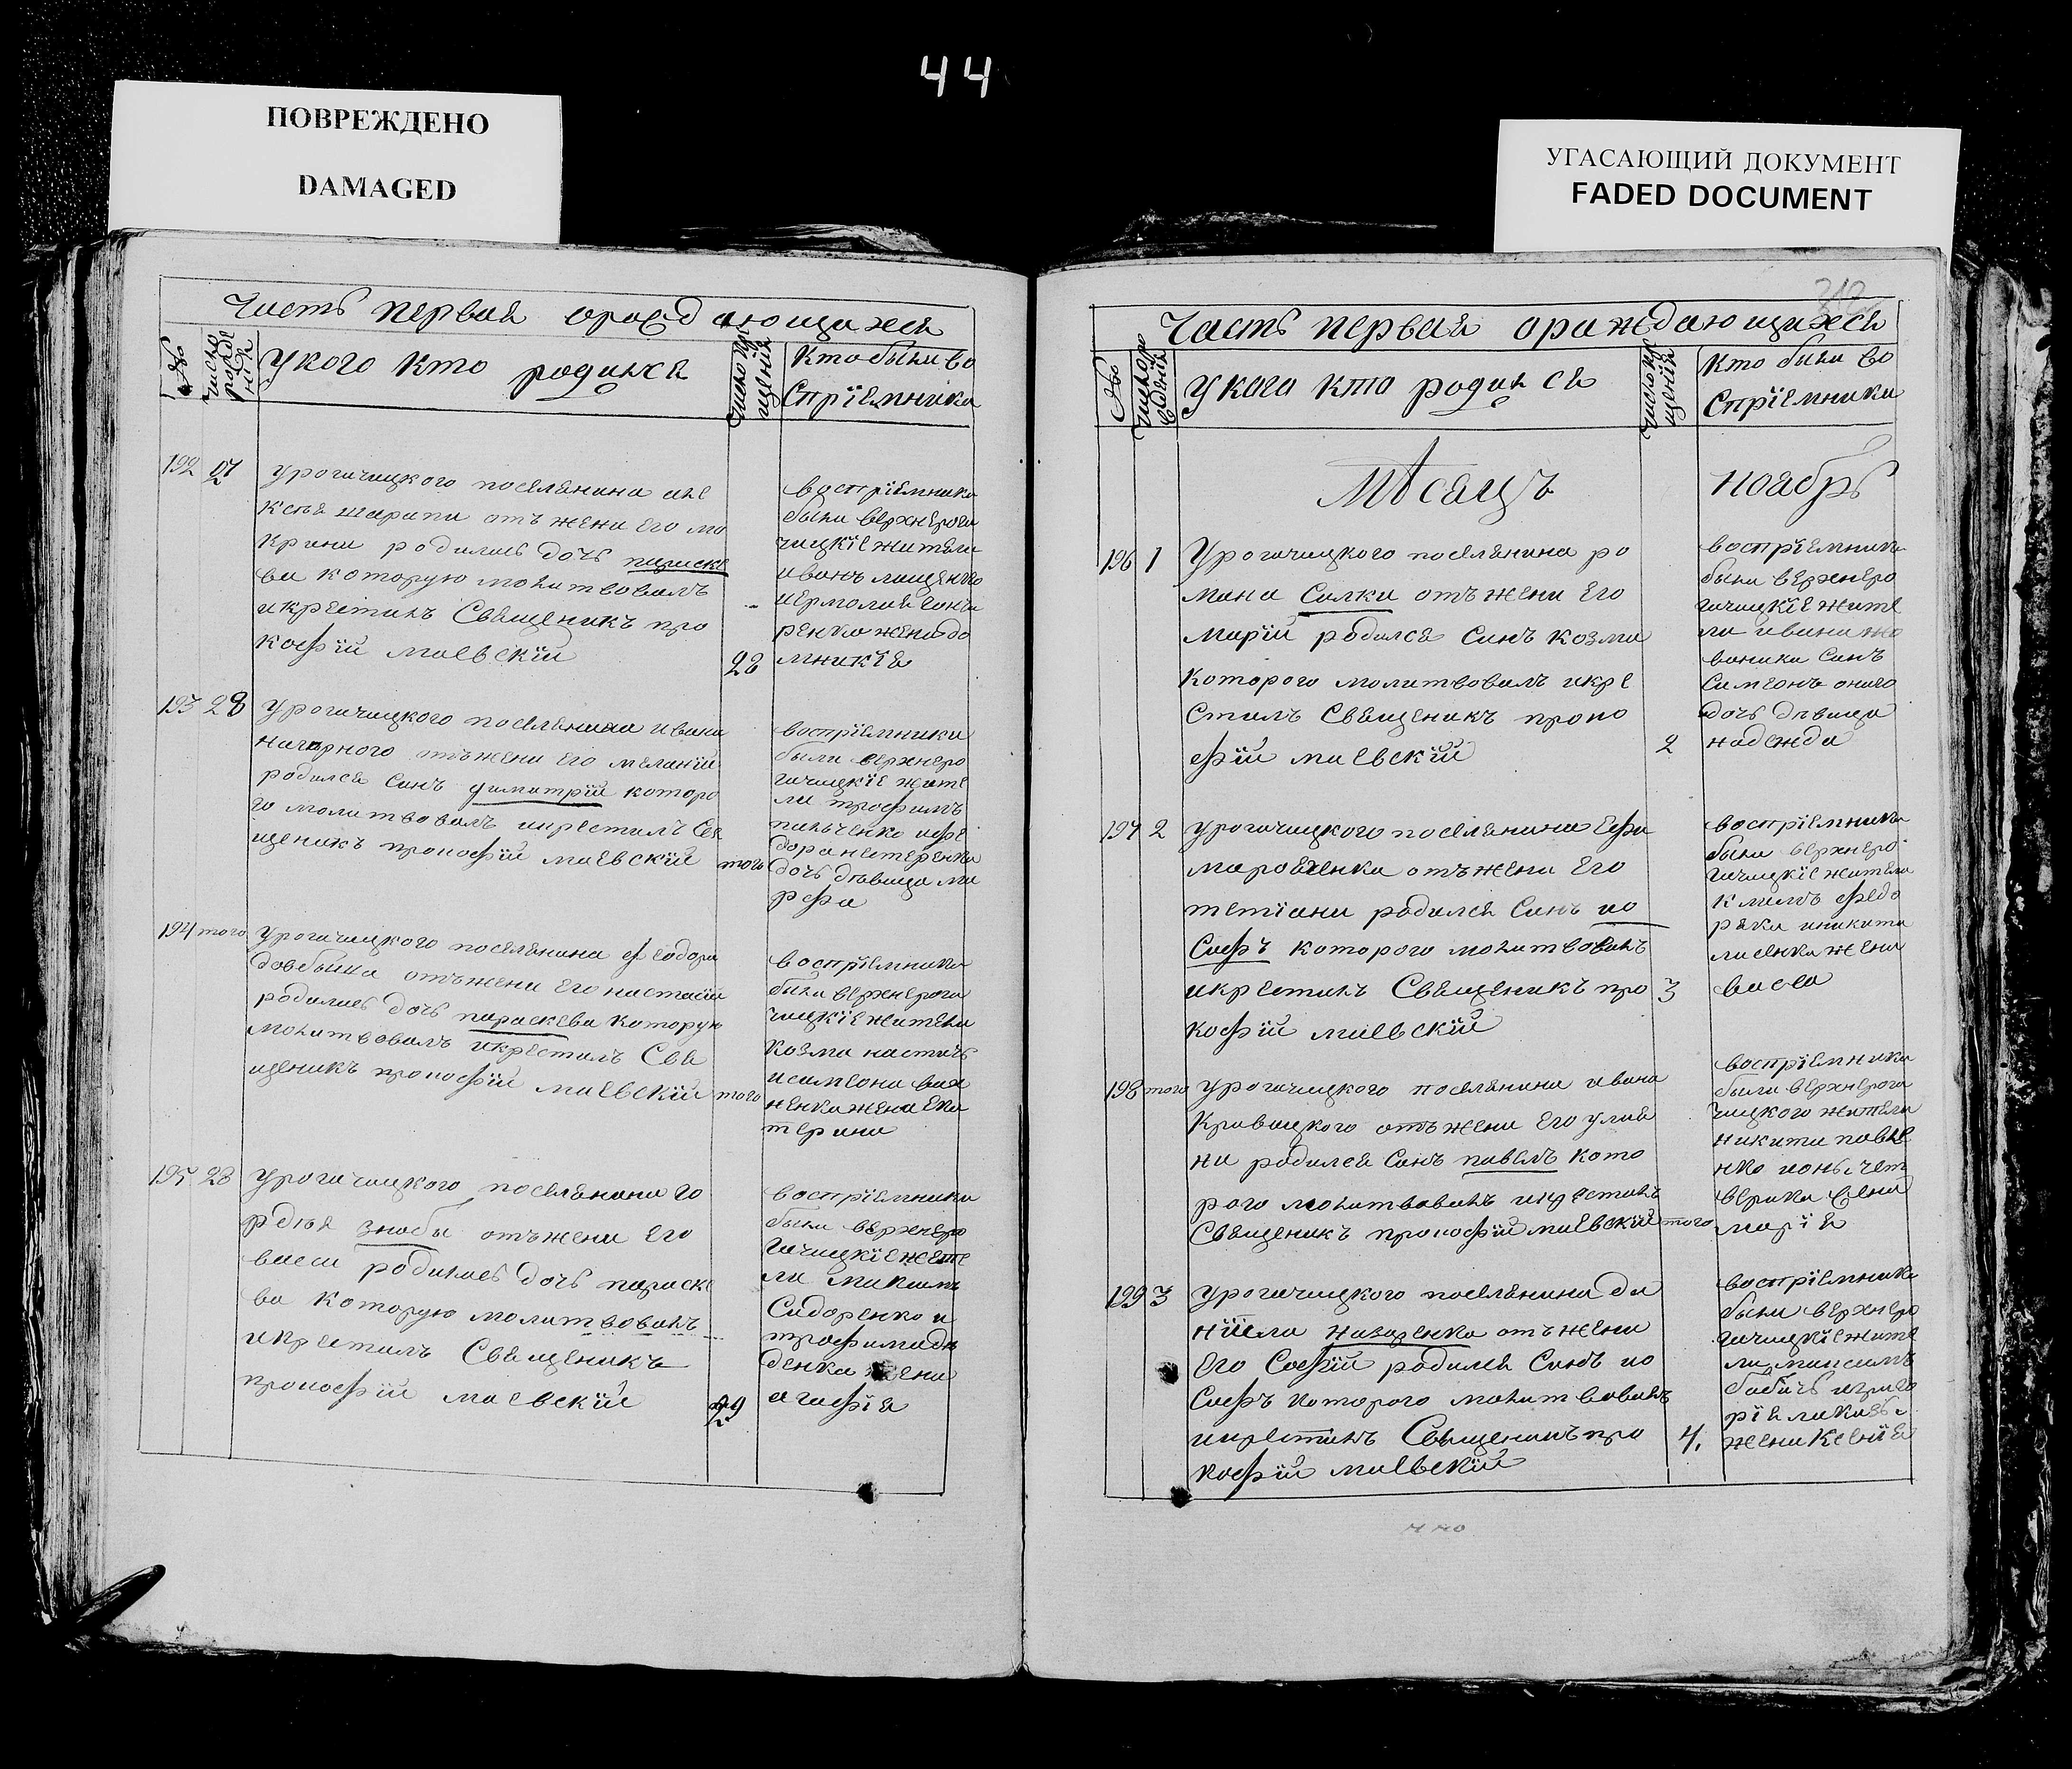 44
ПОВРЕЖДЕНО
DAMAGED
УГАСАЮЩИЙ ДОКУМЕНТ
FADED DOCUMENT
Часть первая ораждающихся
укого кто родился
Кто были во
спрїемники
192 27
урогачицкого поселянина але
ксѣя шарапи отъ жени его ма
крини родилась дочь параске
ва которую молитвовалъ
икрестилъ Священикъ про
кофїй маевскїй
28
воспрїемники
были верхнерога
чицкїе жители
иванъ
иермолая гонча
ренка жена до
мникїя
193 28
урогачицкого поселянина ивана
отъжени его меланїи
родился синъ димитрїй которо
го молитвовалъ икрестилъ Свя
щеникъ прокофїй маевскїй
того
воспрїемники
были верхнеро
гачицкїе жите
ли трофимъ
ифе
дора нестеренка
дочь дѣвица ма
рфа
194 того
урогачицкого поселянина феодора
довбыша отъжени его настасїи
родилась дочь параскева которую
молитвовалъ икрестилъ Свя
щеникъ прокофїй маевскїй
того
воспрїемники
были верхнерога
чицкїе жители
козма
исимеона
ненка жена ека
терина
195 28
урогачицкого поселянина го
рдѣя знобы отъжени его
васси родилась дочь параске
ва которую молитвовалъ
икрестилъ Священикъ
прокофїй маевскїй
29
воспрїемники
были верхнеро
гачицкїе жите
ли максимъ
Сидоренко и
трофима
денка жена
агафїя
Часть первая ораждающихся
укого кто родился
Кто были во
спрїемники
Мѣсяцъ ноябрь
196 1
Урогачицкого поселянина ро
мана Силки отъжени его
марїи родился синъ козма
которого молитвовалъ икре
стилъ Священикъ проко
фїй маевскїй
2
воспрїемники
были верхнеро
гачицкїе жите
ли ивана
синъ
Симеонъ оного
дочь дѣвица
надежда
197 2
урогачицкого поселянина
отъжени его
тетїани родился синъ ио
сифъ которого молитвовалъ
икрестилъ Священикъ про
кофїй маевскїй
3
воспрїемники
были верхнеро
гачицкїе жители
климъ федо
ряка иникити
лисенка жена
васса
198 того
урогачицкого поселянина ивана
Кравицкого отъжени его улия
ни родился синъ павелъ кото
рого молитвовалъ икрестилъ
Священикъ прокофїй маевскїй
того
воспрїемники
были верхнерога
чицкого жители
никита павле
нко
верика жена
марїя
199 3
урогачицкого поселянина да
нїила назаренка отъжени
его Софїи родился Синъ ио
сифъ которого молитвовалъ
икрестилъ Священикъ про
кофїй маевскїй
4.
воспрїемники
были верхнеро
гачицкїе жите
ли максимъ
бабичъ игриго
рїя
жена Ксенїя